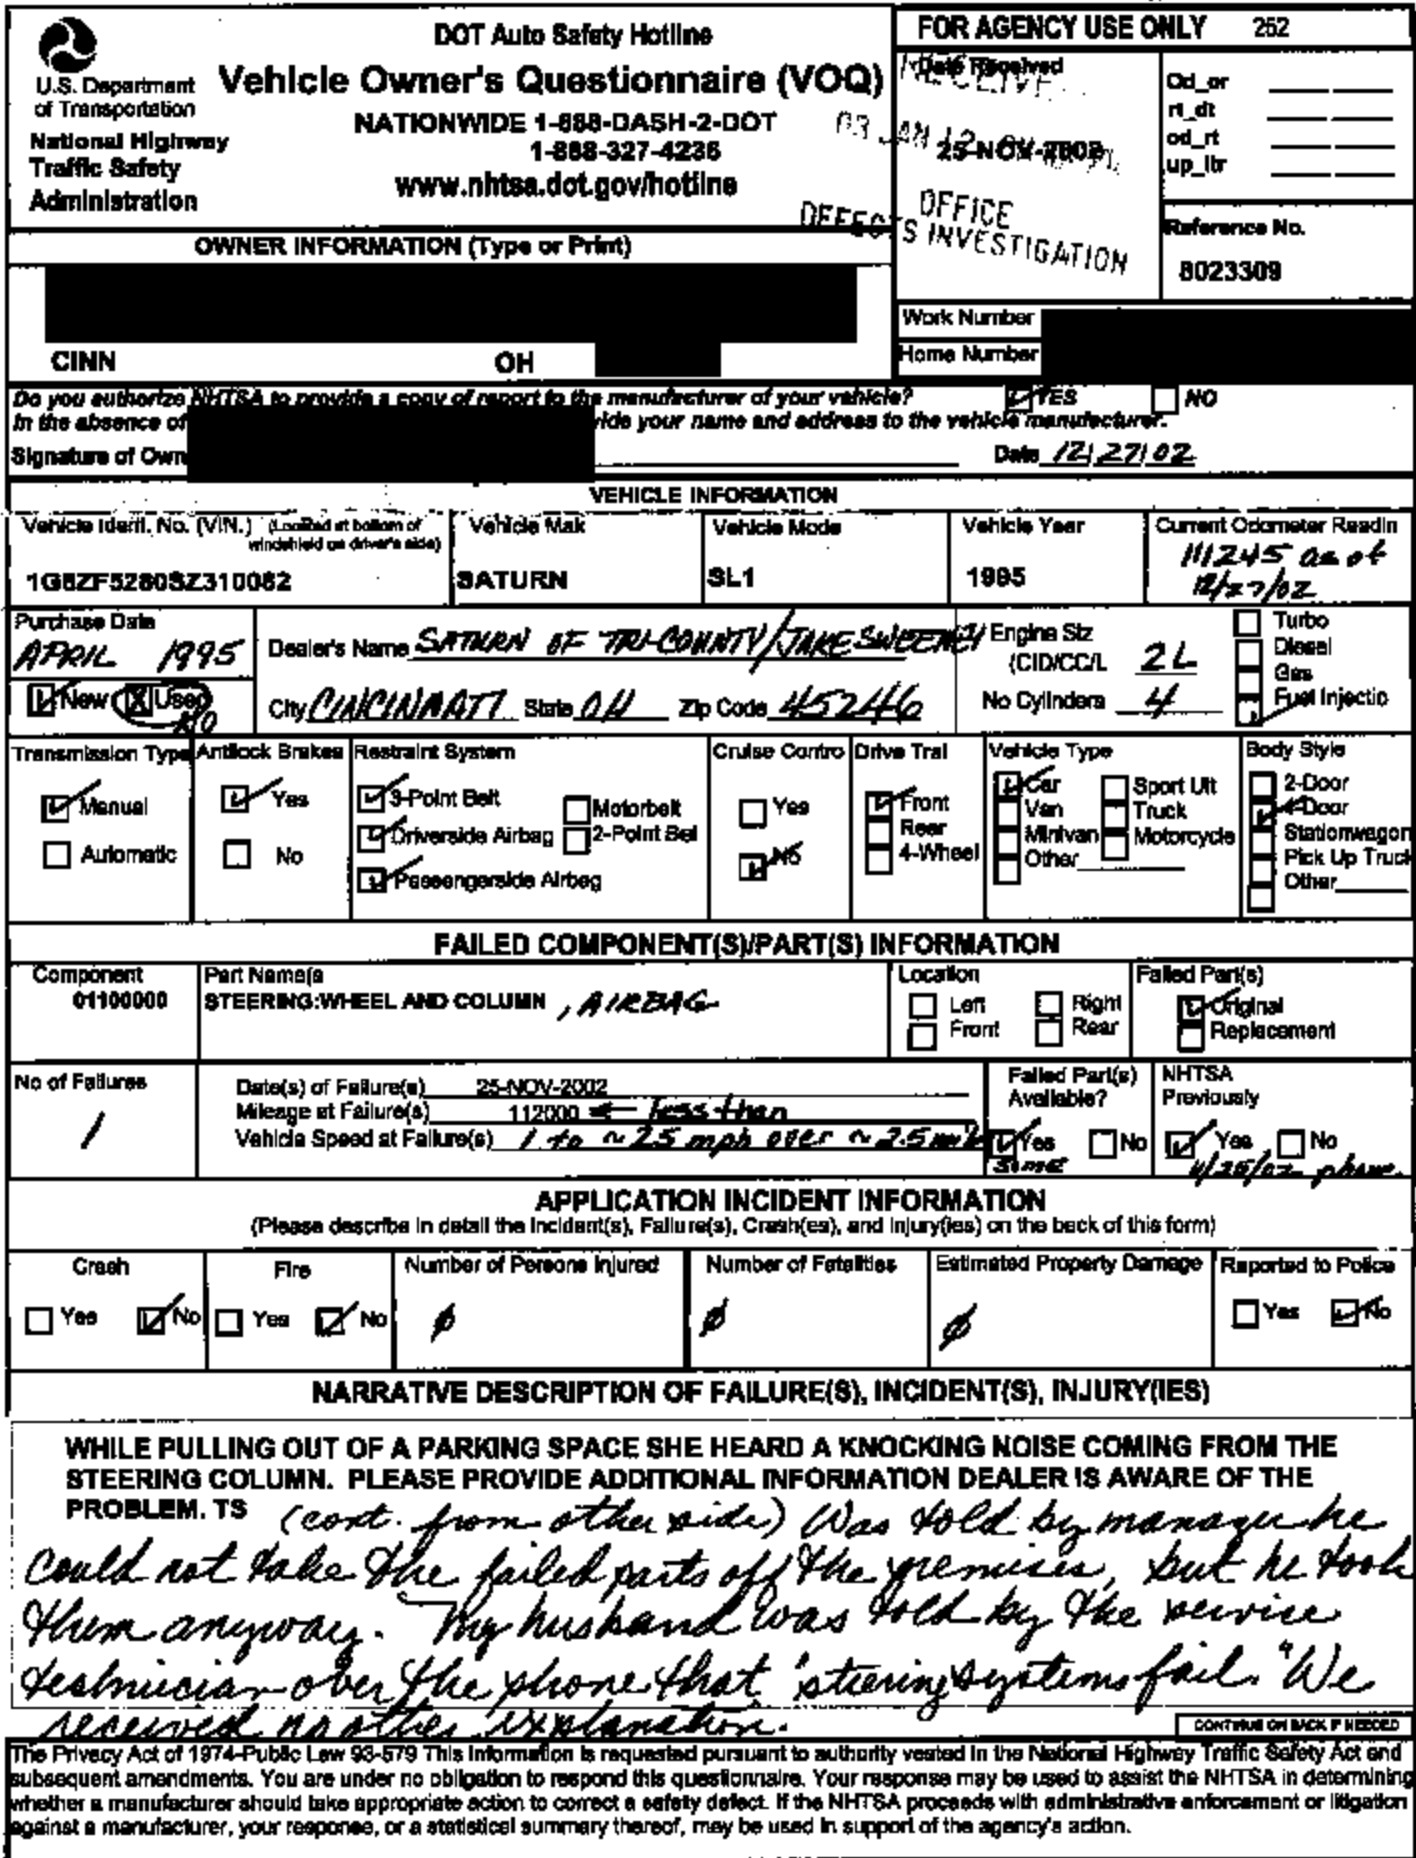 DOT Auto Safety Hotline
U.S. Department
of Transportation
National Highway
Traffic Safety
Administration
Vehicle Owner's Questionnaire (VOQ)
NATIONWIDE 1-888-DASH-2-DOT
1-888-327-4236
www.nhtsa.dot.gov/hotline
FOR AGENCY USE ONLY 252
Date Received
25-NOV-2002
03 JAN 12
OFFICE
DEFECTS INVESTIGATION
Od_or
rt_dt
od_rt
up_ltr
Reference No.
8023309
OWNER INFORMATION (Type or Print)
CINN OH
Work Number
Home Number
Do you authorize NHTSA to provide a copy of report to the manufacturer of your vehicle? YES NO
In the absence of vide your name and address to the vehicle manufacturer.
Signature of Own Date 12/27/02
VEHICLE INFORMATION
Vehicle Ident. No. (VIN.) (Located at bottom of windshield on driver's side)
1G8ZF5280SZ310082
Vehicle Mak
SATURN
Vehicle Mode
SL1
Vehicle Year
1995
Current Odometer Readin
111245 as of
12/27/02
Purchase Date
APRIL 1995
New X Used
NO
Dealer's Name SATURN OF TRI-COUNTY/JAKE SWEENEY
City CINCINNATI State OH Zip Code 45246
Engine Siz
(CID/CC/L 2L
No Cylinders 4
Turbo
Diesel
Gas
Fuel Injectio
Transmission Type
Manual
Automatic
Antilock Brakes
Yes
No
Restraint System
3-Point Belt
Driverside Airbag
Passengerside Airbag
Motorbelt
2-Point Bel
Cruise Contro
Yes
No
Drive Trai
Front
Rear
4-Wheel
Vehicle Type
Car
Van
Minivan
Other
Sport Ult
Truck
Motorcycle
Body Style
2-Door
4-Door
Stationwagon
Pick Up Truck
Other
FAILED COMPONENT(S)/PART(S) INFORMATION
Component
01100000
Part Name(s
STEERING:WHEEL AND COLUMN , AIRBAG
Location
Left Right
Front Rear
Failed Part(s)
Original
Replacement
No of Failures
1
Date(s) of Failure(s) 25-NOV-2002
Mileage at Failure(s) 112000 ← less than
Vehicle Speed at Failure(s) 1 to ~ 25 mph over ~ 2.5 mi
Failed Part(s)
Available?
Yes No
some
NHTSA
Previously
Yes No
11/25/02 phone
APPLICATION INCIDENT INFORMATION
(Please describe in detail the Incident(s), Failure(s), Crash(es), and Injury(ies) on the back of this form)
Crash
Yes No
Fire
Yes No
Number of Persons Injured
Ø
Number of Fatalities
Ø
Estimated Property Damage
Ø
Reported to Police
Yes No
NARRATIVE DESCRIPTION OF FAILURE(S), INCIDENT(S), INJURY(IES)
WHILE PULLING OUT OF A PARKING SPACE SHE HEARD A KNOCKING NOISE COMING FROM THE
STEERING COLUMN. PLEASE PROVIDE ADDITIONAL INFORMATION DEALER IS AWARE OF THE
PROBLEM. TS (cont. from other side) Was told by manager he
could not take the failed parts off the premises, but he took
them anyway. My husband was told by the service
technician over the phone that "steering systems fail." We
received no other explanation.
CONTINUE ON BACK IF NEEDED
The Privacy Act of 1974-Public Law 93-579 This information is requested pursuant to authority vested in the National Highway Traffic Safety Act and
subsequent amendments. You are under no obligation to respond this questionnaire. Your response may be used to assist the NHTSA in determining
whether a manufacturer should take appropriate action to correct a safety defect. If the NHTSA proceeds with administrative enforcement or litigation
against a manufacturer, your response, or a statistical summary thereof, may be used in support of the agency's action.